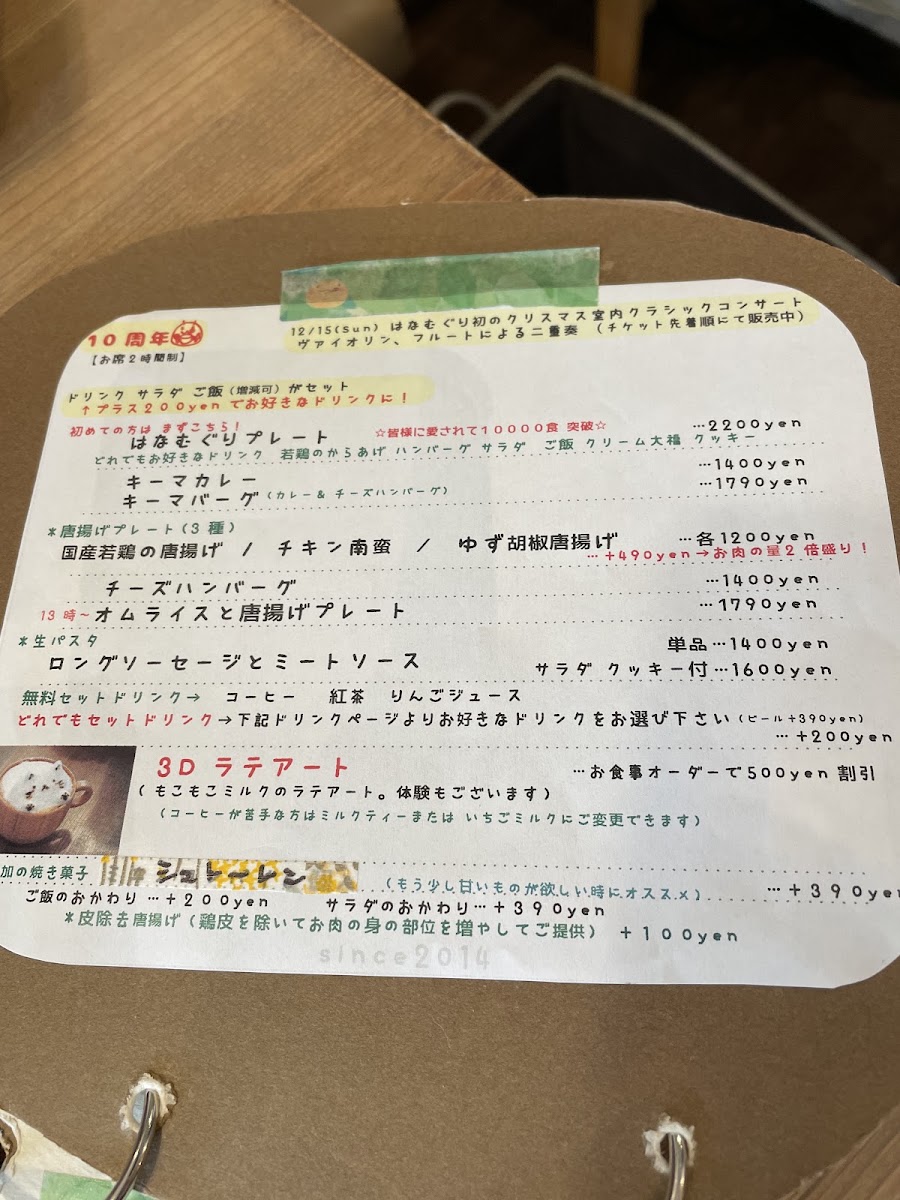 12/15(Sun) はなむぐり初のクリスマス室内クラシックコンサート
ヴァイオリン、フルートによる二重奏 (チケット先着順にて販売中)
10周年
【お席2時間制】
ドリンク サラダ ご飯(増減可)がセット
↑プラス200yenでお好きなドリンクに!
初めての方は まずこちら!
はなむぐりプレート ☆皆様に愛されて10000食 突破☆ …2200yen
どれでもお好きなドリンク 若鶏のからあげ ハンバーグ サラダ ご飯 クリーム大福 クッキー
キーマカレー …1400yen
キーマバーグ(カレー& チーズハンバーグ) …1790yen
*唐揚げプレート(3種)
国産若鶏の唐揚げ / チキン南蛮 / ゆず胡椒唐揚げ …各1200yen
…+490yen→お肉の量2倍盛り!
チーズハンバーグ …1400yen
13時~オムライスと唐揚げプレート …1790yen
*生パスタ
ロングソーセージとミートソース 単品…1400yen
サラダ クッキー付…1600yen
無料セットドリンク→ コーヒー 紅茶 りんごジュース
どれでもセットドリンク→下記ドリンクページよりお好きなドリンクをお選び下さい(ビール+390yen)
…+200yen
3D ラテアート …お食事オーダーで500yen 割引
(もこもこミルクのラテアート。体験もございます)
(コーヒーが苦手な方はミルクティーまたは いちごミルクにご変更できます)
加の焼き菓子 シュトーレン (もう少し甘いものが欲しい時にオススメ) …+390yen
ご飯のおかわり …+200yen サラダのおかわり…+390yen
*皮除去唐揚げ(鶏皮を除いてお肉の身の部位を増やしてご提供) +100yen
since2014